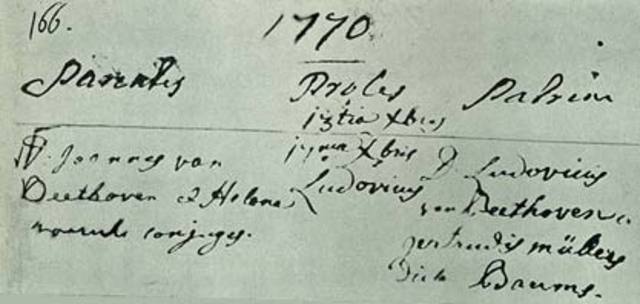 166.
1770.
Parentes
Proles
Patrini
Xbris
D: Joannes van
Beethoven & Helena
conjuges.
Xbris
Ludovicus
D: Ludovicus
van Beethoven &
gertrudis müllers
dicta Baums.